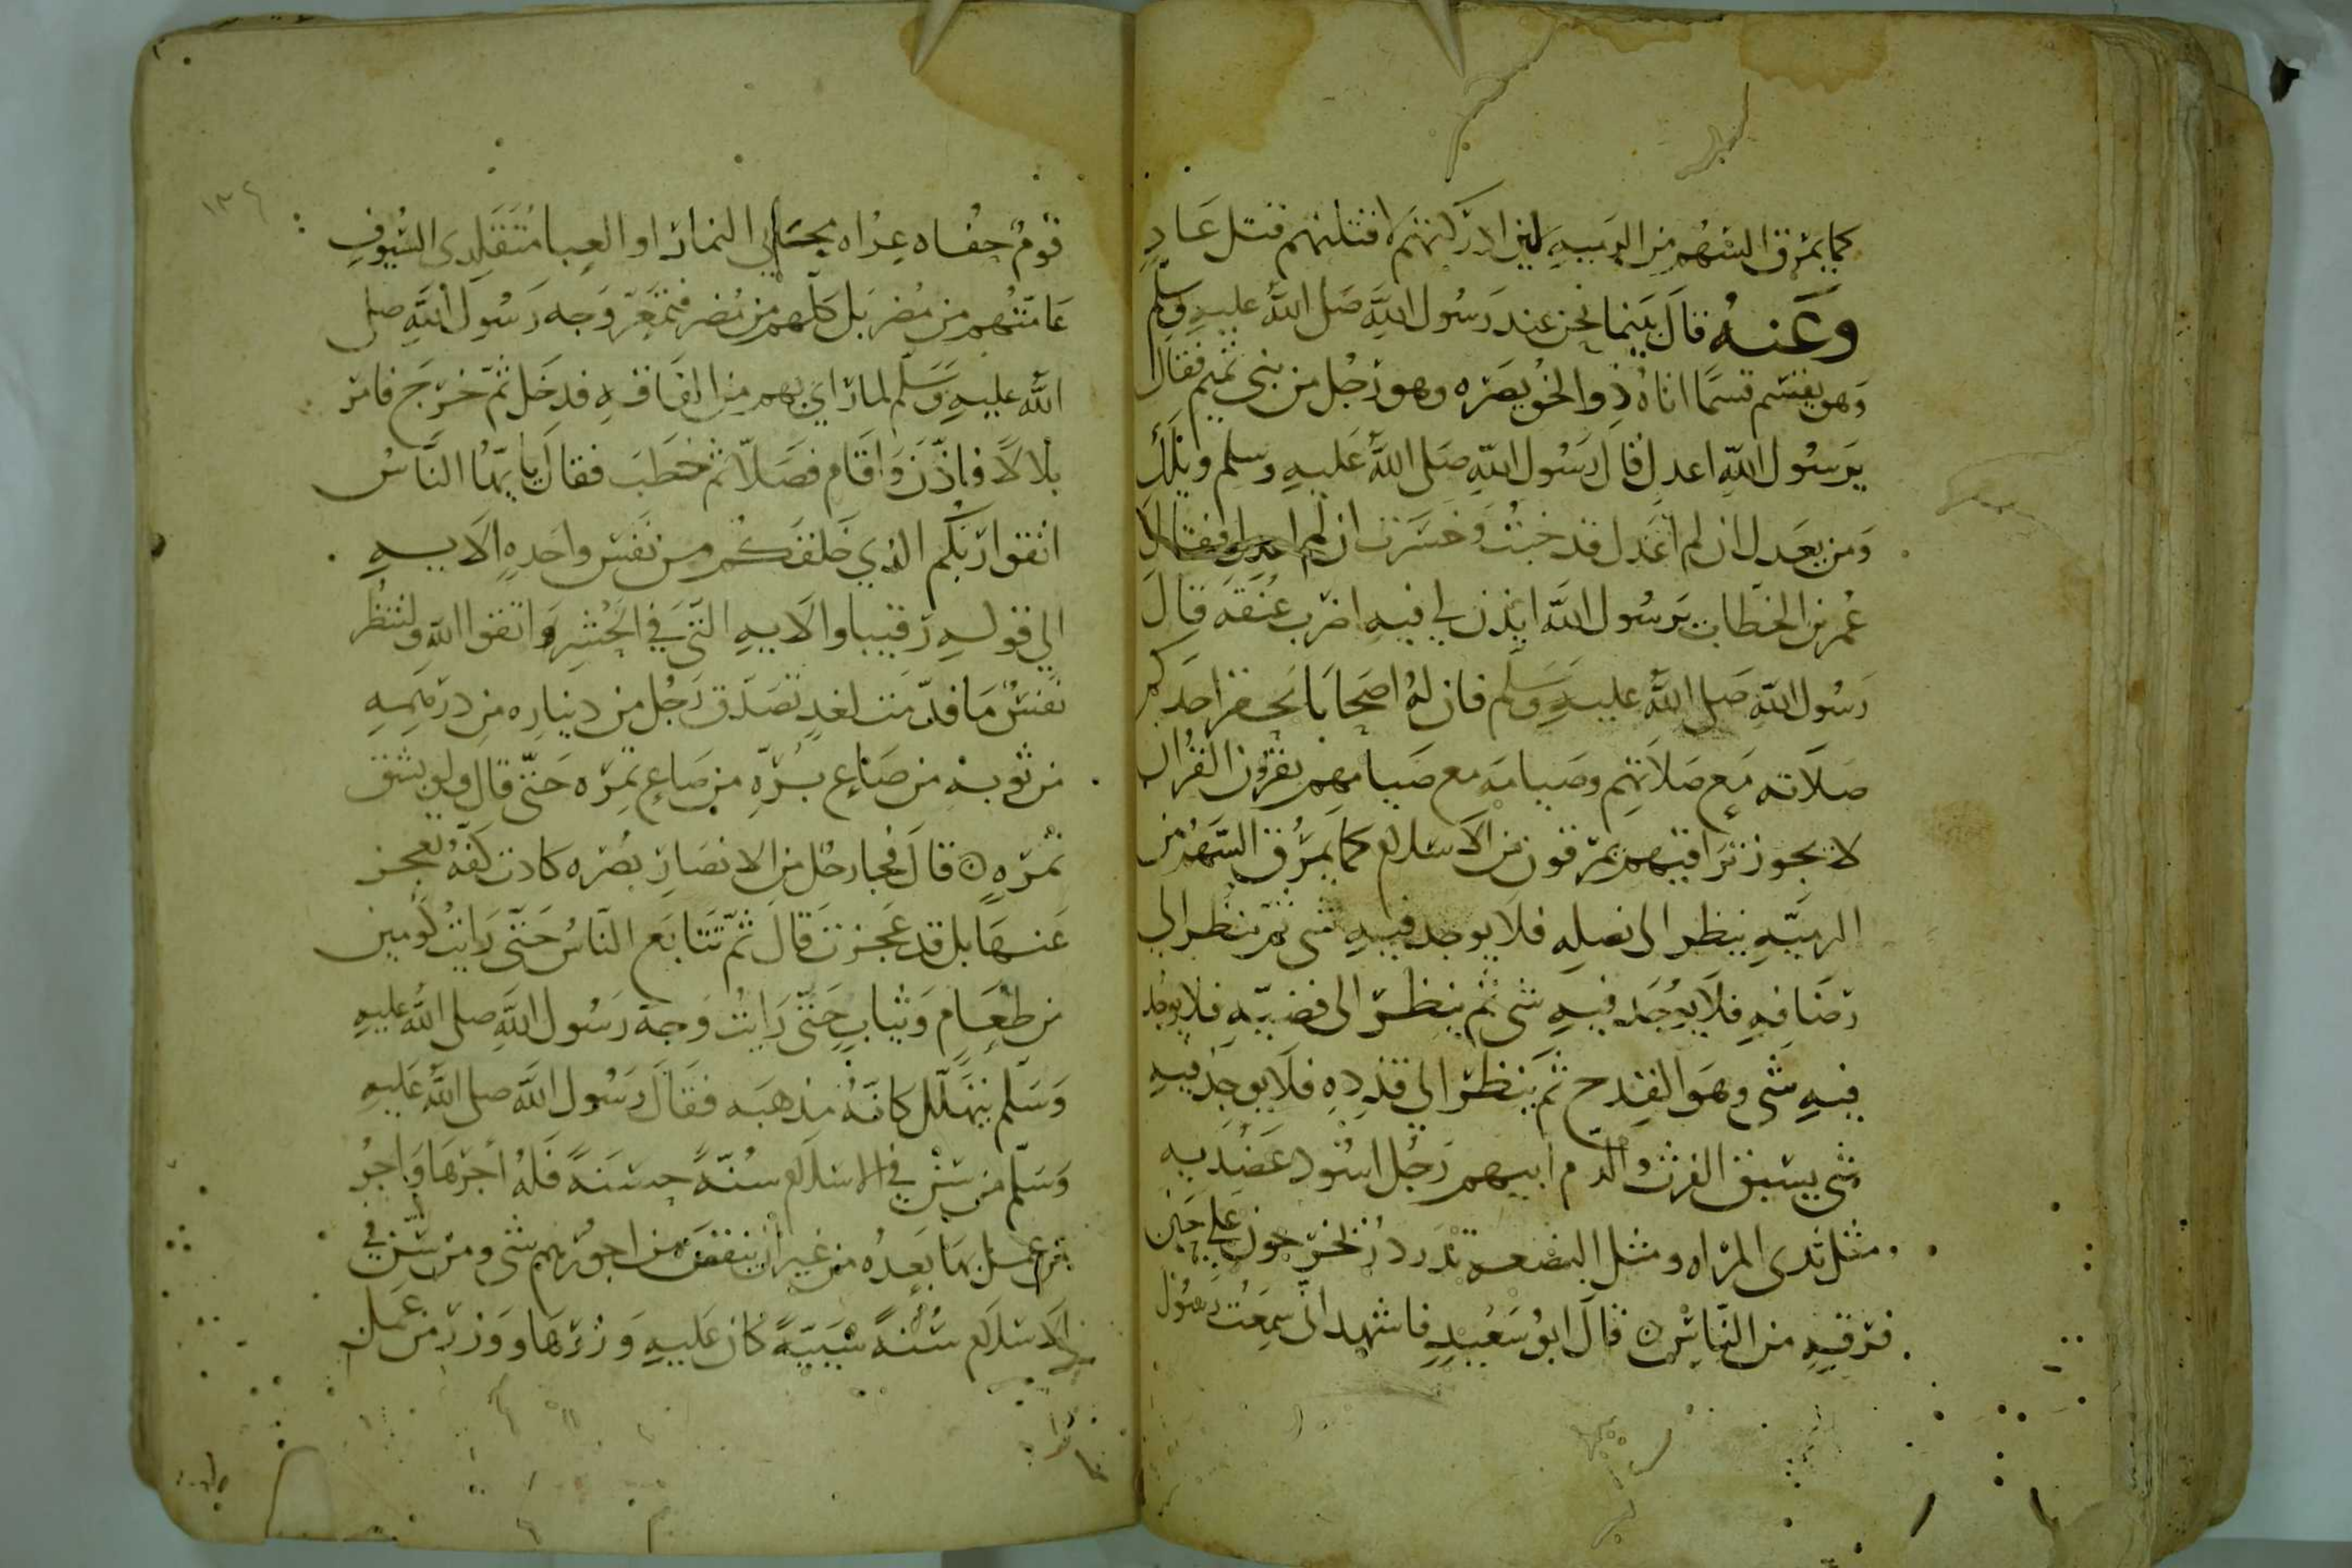 كما يمرق السهم من الرميه لين ادركتهم لاقتلنهم قتل عاد
وعنه قال بينما نحن عند رسول الله صلى الله عليه وسلم
وهو يقسم قسما اتاه ذو الخويصره وهو رجل من بنى تميم فقال
يرسول الله اعدل قال رسول الله صلى الله عليه وسلم ويلك
ومن يعدل ان لم اعدل قد خبت وخسرت ان لم اعدل فقال
عمر بن الخطاب يرسول الله ايذن لي فيه اضرب عنقه قال
رسول الله صلى الله عليه وسلم فان له اصحابا يحقر احدكم
صلاته مع صلاتهم وصيامه مع صيامهم يقرون القران
لا يجوز تراقيهم يمرقون من الاسلام كما يمرق السهم من
الرميه ينظر الى نصله فلا يوجد فيه شى ثم ينظر الي
رصافه فلا يوجد فيه شى ثم ينظر الى نضيه فلا يوجد
فيه شى وهو القدح ثم ينظر الي قذده فلا يوجد فيه
شى يسبق الفرث والدم ايهم رجل اسود عضديه
مثل ثدى المراه ومثل البضعه تدردر تخرجون على حين
فرقه من الناس قال ابو سعيد فاشهد انى سمعت رسول
١٣٤
قوم حفاه عراه مجتابي النمار او العبا متقلدى السيوف
عامتهم من مضر بل كلهم من مضر فتمعر وجه رسول الله صلى
الله عليه وسلم لما راي بهم من الفاقه فدخل ثم خرج فامر
بلالا فاذن واقام فصلا ثم خطب فقال يايها الناس
اتقوا ربكم الذي خلقكم من نفس واحده الايه
الي قوله رقيبا والايه التى في الحشر واتقوا الله ولتنظر
نفس ما قدمت لغد تصدق رجل من ديناره من درهمه
من ثوبه من صاع بره من صاع تمره حتى قال ولو بشق
تمره قال فجا رجل من الانصار بصره كادت كفه تعجز
عنها بل قد عجزت قال ثم تتابع الناس حتى رايت كومين
من طعام وثياب حتى رايت وجه رسول الله صلى الله عليه
وسلم يتهلل كانه مذهبه فقال رسول الله صلى الله عليه
وسلم من سن في الاسلام سنة حسنة فله اجرها واجر
من عمل بها بعده من غير ان ينقص من اجورهم شى ومن سن في
الاسلام سنة سيية كان عليه وزرها ووزر من عمل